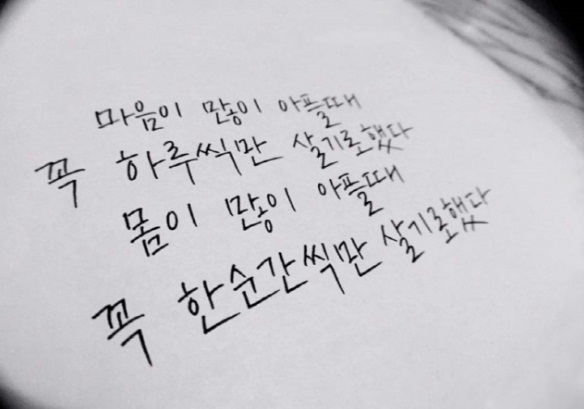 마음이 많이 아플때
꼭 하루씩만 살기로했다
몸이 많이 아플때
꼭 한순간씩만 살기로했다